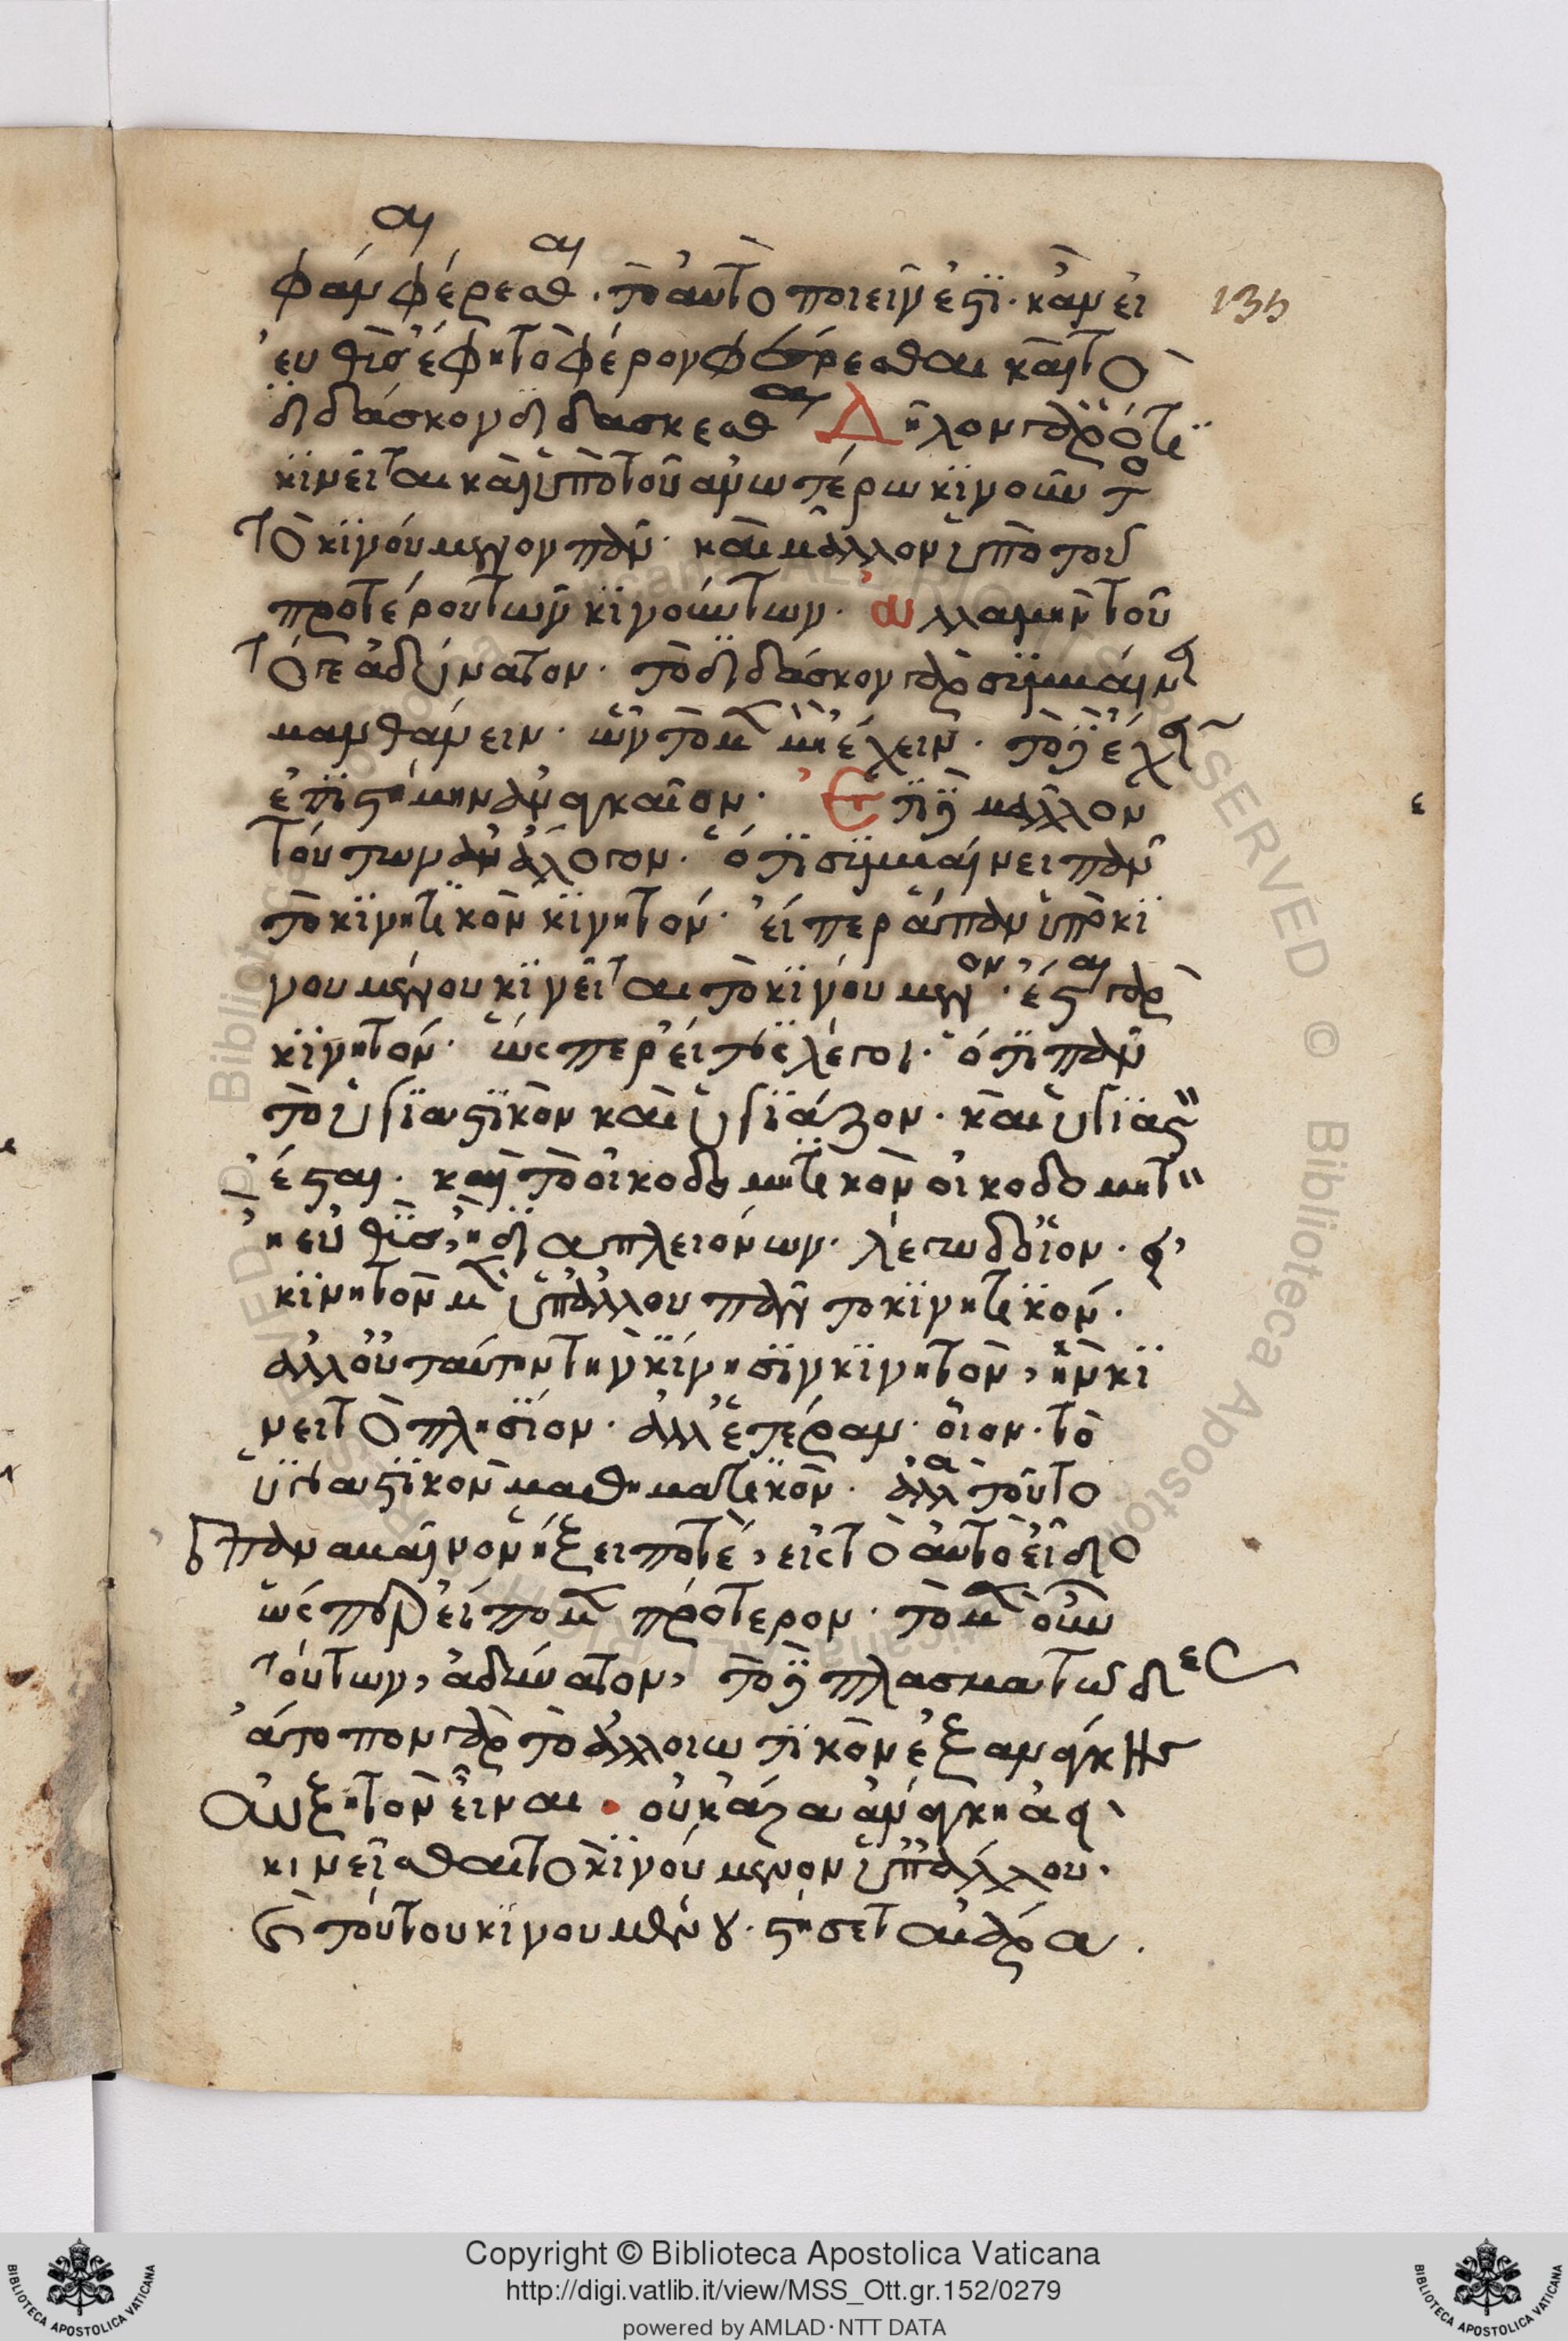 φάναι φέρεσθαι. τὸ αὐτὸ ποιεῖν ἐστί. κἂν εἰ
εὐθὺς ἔφη τὸ φέρον φέρεσθαι καὶ τὸ
διδάσκον διδάσκεσθαι Δῆλον γὰρ ὅτι
κινεῖται καὶ ὑπὸ τοῦ ἀνωτέρω κινοῦντος
τὸ κινούμενον πᾶν. καὶ μᾶλλον ὑπὸ τοῦ
προτέρου τῶν κινούντων. ἀλλα μὴν τοῦ
τό γε ἀδύνατον. τὸ διδάσκον γὰρ συμβαίνει
μανθάνειν. ὧν τὸ μὲν μὴ ἔχειν. τὸ δὲ ἔχειν
ἐπιστήμην ἀναγκαῖον. Ἔτι δὲ μᾶλλον
τούτων ἄλογον. ὅτι συμβαίνει πᾶν
τὸ κινητικὸν κινητόν. εἴπερ ἅπαν ὑπὸ κι
νουμένου κινεῖται τὸ κινούμενον. ἔσται γὰρ
κινητόν. ὥσπερ εἴ τις λέγοι. ὅτι πᾶν
τὸ ὑγιαστικὸν καὶ ὑγιάζον. καὶ ὑγιαστὸν
ἔσται. καὶ τὸ οἰκοδομητικὸν οἰκοδομητὸν
ἢ εὐθὺς, ἢ διὰ πλειόνων. λέγω δ οἷον. εἰ
κινητὸν μὲν ὑπ ἄλλου πᾶν τὸ κινητικόν.
ἀλλ οὐ ταύτην τὴν κίνησιν κινητὸν, ἣν κι
νεῖ τὸ πλησίον. ἀλλ ἑτέραν. οἷον. τὸ
ὑγιαστικὸν μαθηματικόν. ἀλλὰ τοῦτο
ἐπαναβαῖνον ἥξει ποτὲ, εἰς τὸ αὐτὸ εἶδο
ὥσπερ εἴπομεν πρότερον. τὸ μὲν οὖν
τούτων, ἀδύνατον, τὸ δὲ πλασματῶδες
ἄτοπον γὰρ τὸ ἀλλοιωτικὸν ἐξ ἀνάγκης
αὐξητὸν εἶναι. οὐκ ἄρα ἀνάγκη ἀεὶ
κινεῖσθαι τὸ κινούμενον ὑπ ἄλλου.
καὶ τούτου κινουμένου. στήσεται ἄρα.
135